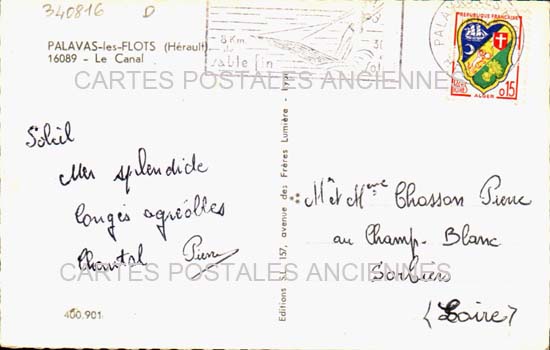 340816 D
PALAVAS-les-FLOTS (Hérault)
16089 - Le Canal
8 Km
de
sable fin
PALAVAS
REPUBLIQUE FRANÇAISE
POSTES
ALGER
0,15
CARTES POSTALES ANCIENNES
Soleil
Mer splendide
Congés agréables
Chantal Pierre
400.901
Editions S.L. 157, avenue des Frères Lumière - Lyon
Mr et Mme Chosson Pierre
au Champ-Blanc
Sorbiers
(Loire)
CARTES POSTALES ANCIENNES